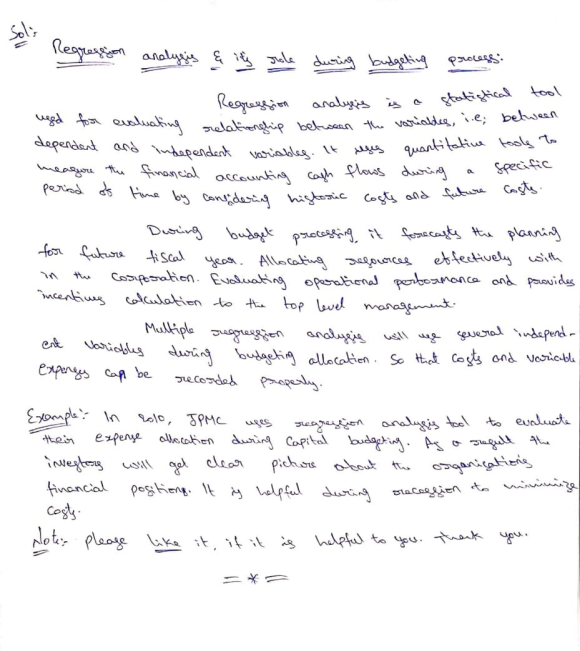 Sol:-
Regression analysis & it's role during budgeting process:
Regression analysis is a statistical tool
used for evaluating relationship between the variables, i.e; between
dependent and independent variables. It uses quantitative tools to
measure the financial accounting cash flows during a specific
period of time by considering historic costs and future costs.
During budget processing, it forecasts the planning
for future fiscal year. Allocating resources effectively with
in the Corporation. Evaluating operational performance and provides
incentives calculation to the top level management.
Multiple regression analysis will use several independ-
ent variables during budgeting allocation. So that costs and variable
expenses can be recorded properly.
Example:- In 2010, JPMC uses regression analysis tool to evaluate
their expense allocation during Capital budgeting. As a result the
investors will get clear picture about the organisation's
financial positions. It is helpful during recession to minimize
costs.
Note:- please like it, if it is helpful to you. thank you.
= * =